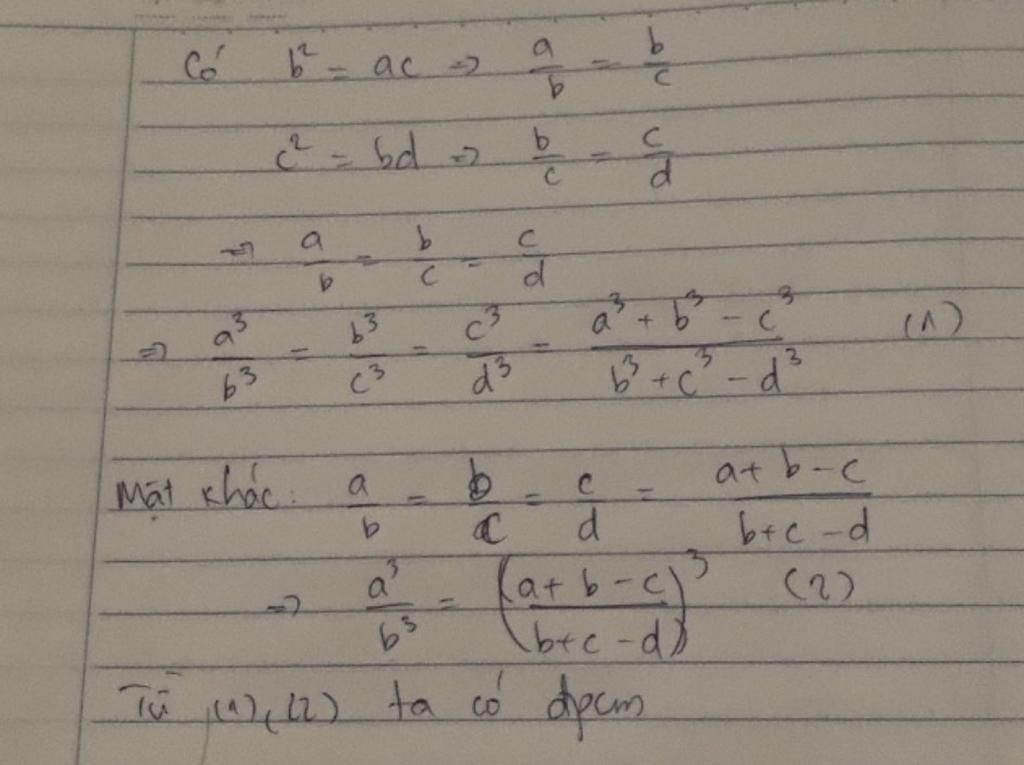 Có b² = ac => a/b = b/c
c² = bd => b/c = c/d
=> a/b = b/c = c/d
=> a³/b³ = b³/c³ = c³/d³ = (a³ + b³ - c³)/(b³ + c³ - d³) (1)
Mặt khác: a/b = b/c = c/d = (a + b - c)/(b + c - d)
=> a³/b³ = ((a + b - c)/(b + c - d))³ (2)
Từ (1), (2) ta có đpcm